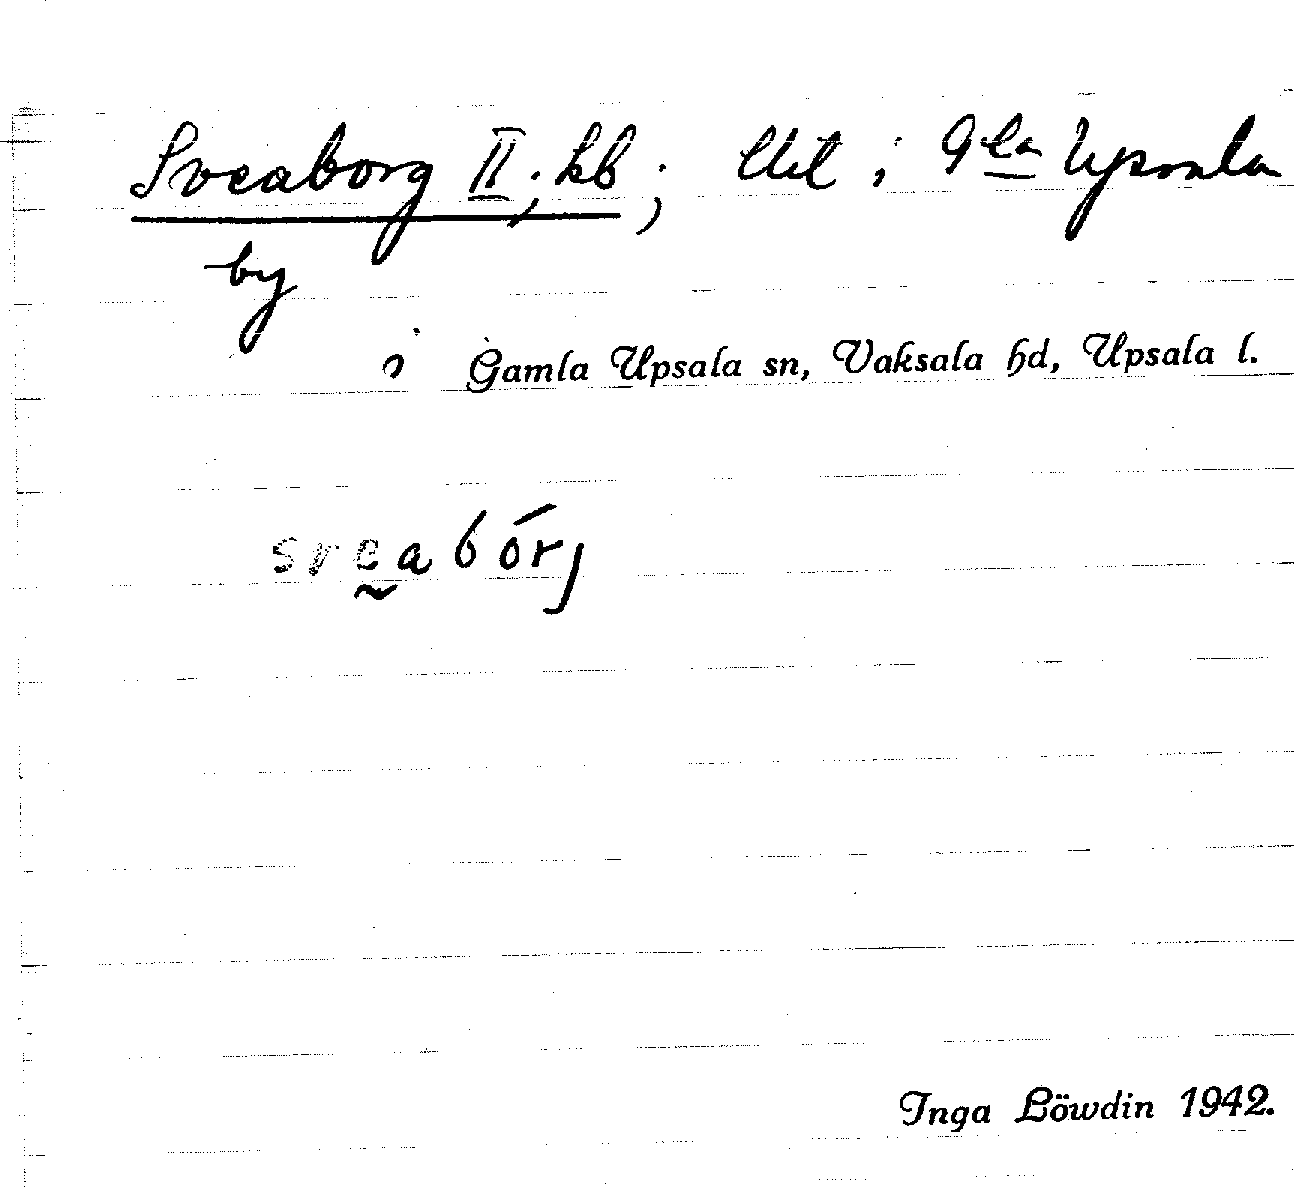 Sveaborg II; kb; litt i Gla Upsala
by
i Gamla Upsala sn, Vaksala hd, Upsala l.
sveabórj
Inga Löwdin 1942.